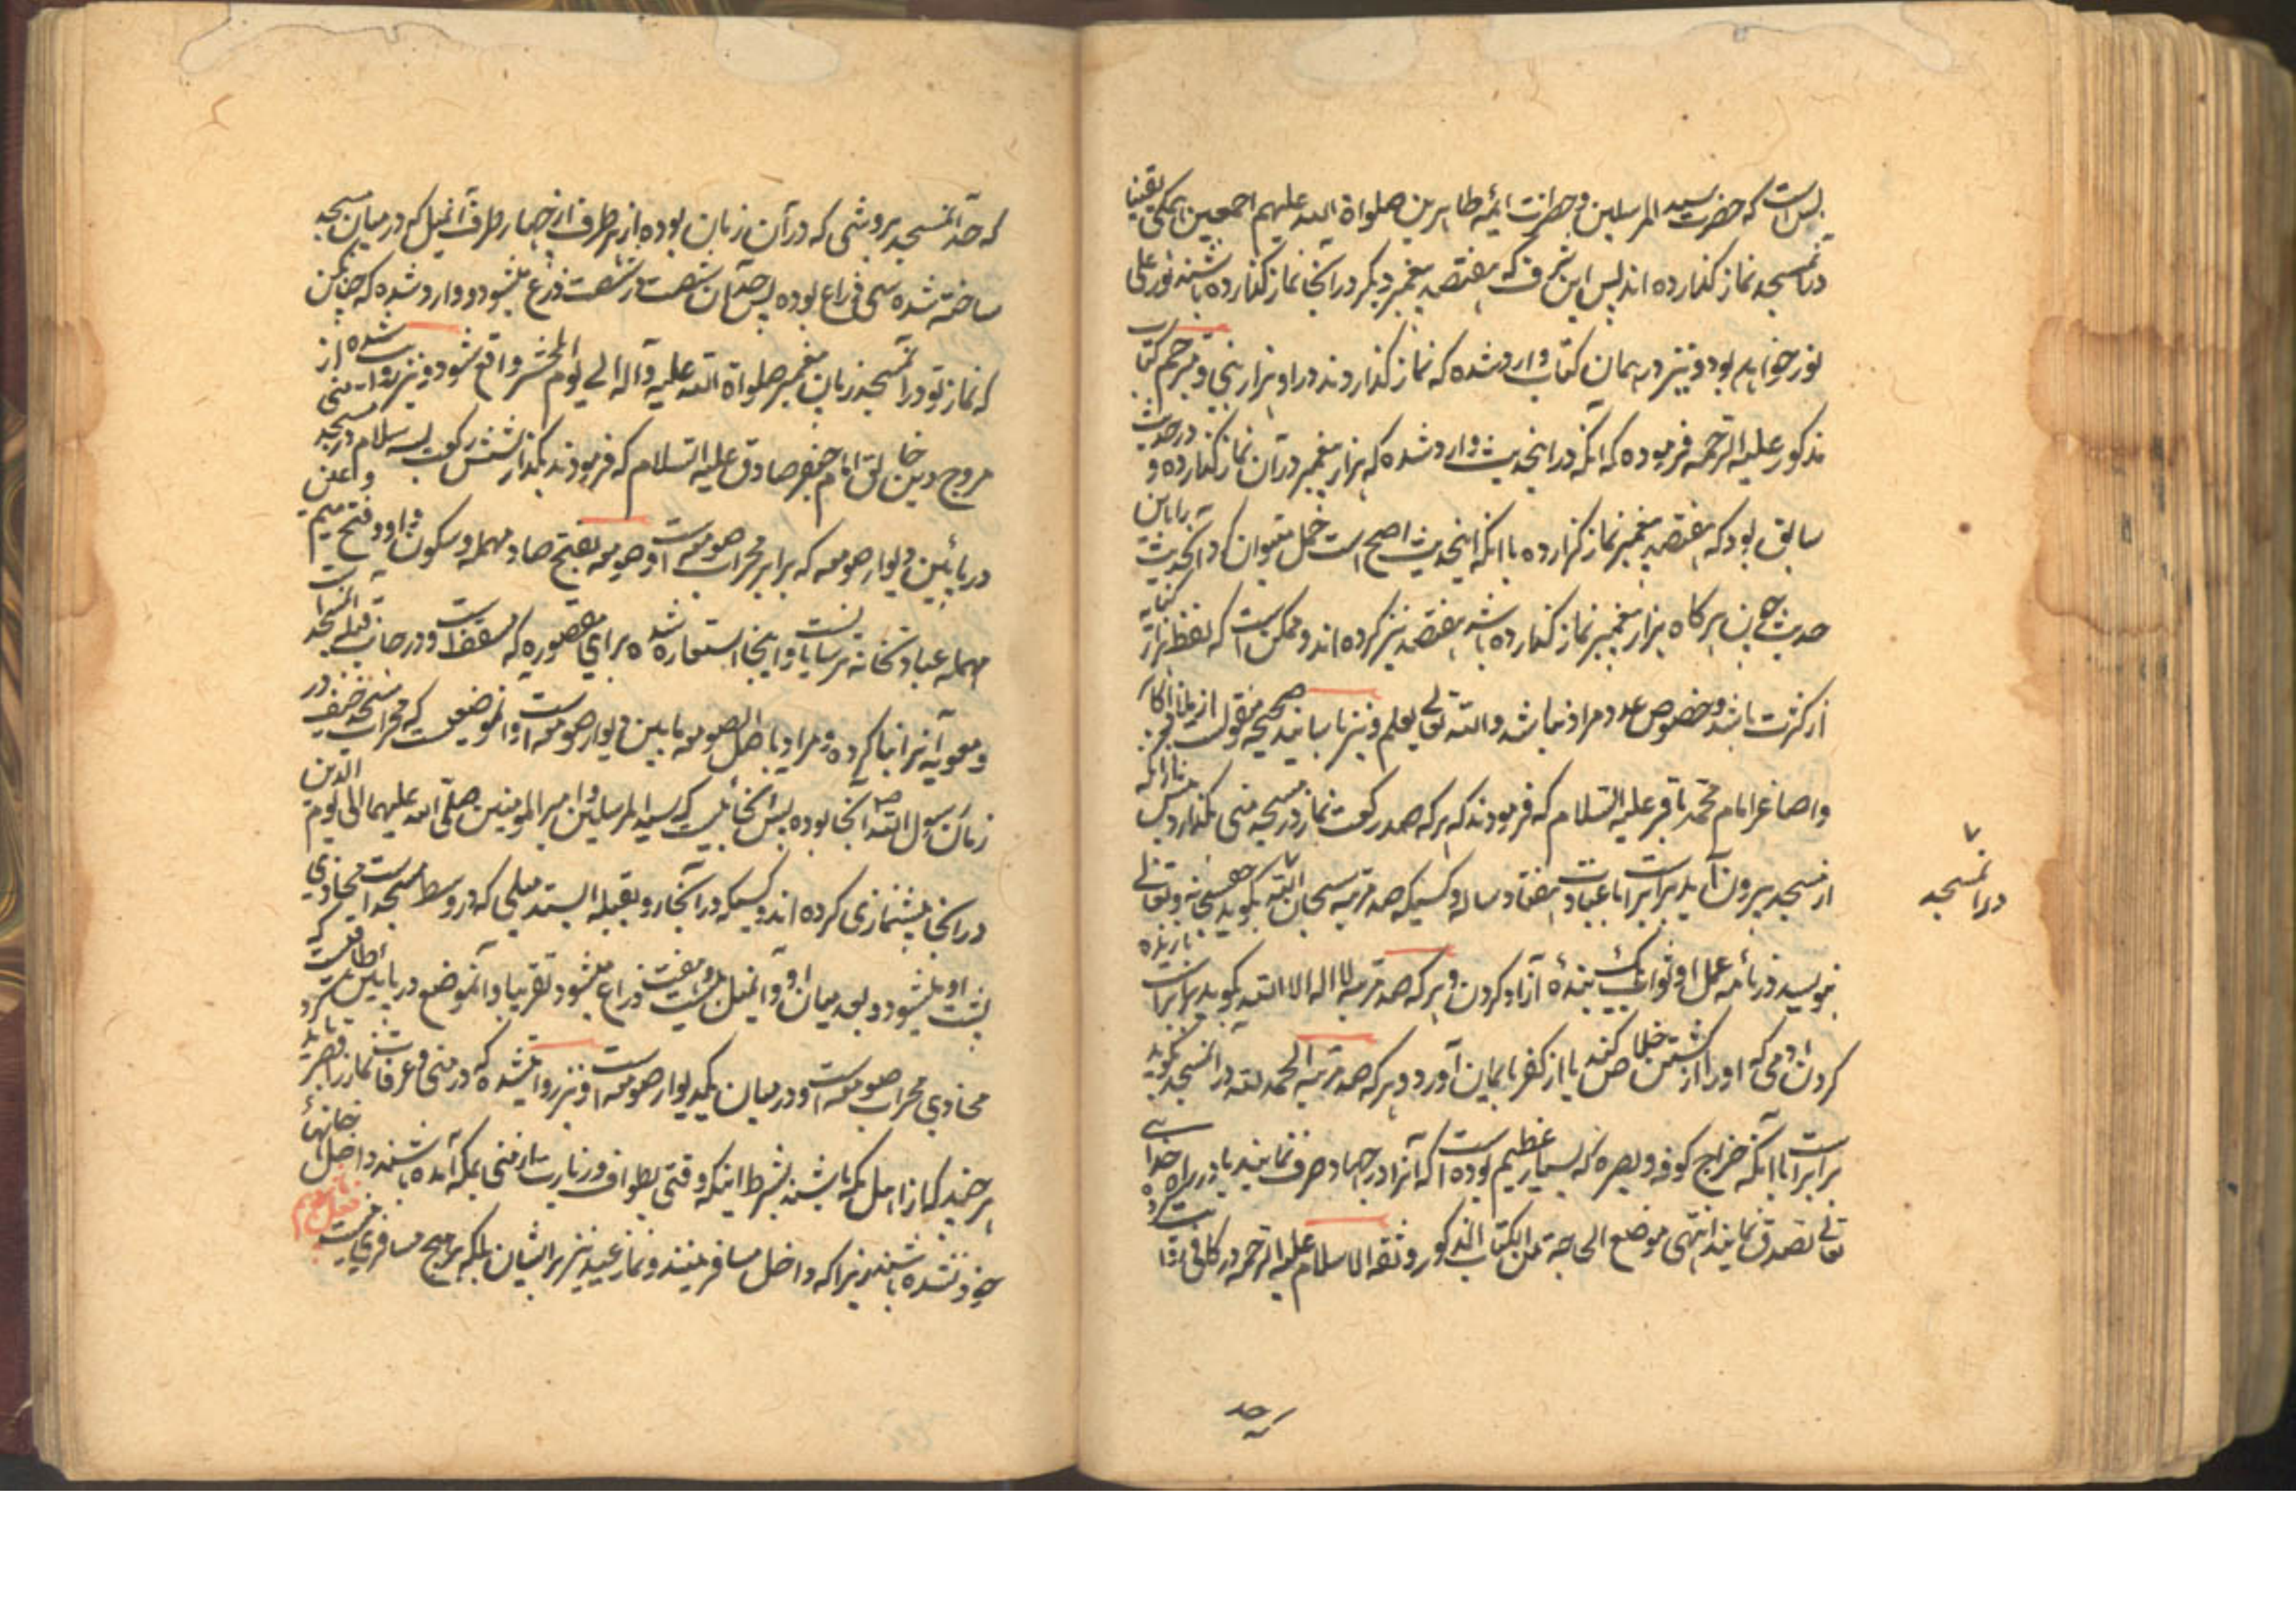 پس است که حضرت سید المرسلین و حضرات ائمه طاهرین صلواة الله علیهم اجمعین همگی یقینا
در آنمسجد نماز کذارده اند پس این شرف که هفتصد پیغمبر دیکر در آنجا نماز کذارده باشند نور علی
نور خواهد بود و نیز در همان کتاب وارد شده که نماز کذاردند در او هزار نبی و مترجم کتاب
مذکور علیه الرحمه فرموده که آنکه در اینحدیث وارد شده که هزار پیغمبر در آن نماز کذارده و در حدیث
سابق بود که هفتصد پیغمبر نماز کزارده با آنکه اینحدیث اصح است حمل میتوان کرد آنحدیث را باین
حدیث چه هرکاه هزار پیغمبر نماز کذارده باشند هفتصد نیز کرده اند و ممکن است که لفظ هزار کنایه
از کثرت باشد و خصوص عدد مراد نباشد والله تعالی یعلم و نیز باسانید صحیحه منقولست از
واصاغر امام محمد باقر علیه السلام که فرمودند که هر که صد رکعت نماز در مسجد منی بکذارد پیش از آنکه
از مسجد بیرون آید برابر است با عبادت هفتاد ساله و کسیکه صد مرتبه سبحان الله بگوید حق سبحانه وتعالی
بنویسد در نامه عمل او ثواب یک بنده آزاد کردن و هر که صد مرتبه لا اله الا الله گوید برابر است با زنده
کردن آدمی که او را از کشتن خلاص کند یا از کفر بایمان آورد و هر که صد مرتبه الحمد لله در آنمسجد بگوید
برابر است با آنکه خراج کوفه و بصره که بسیار عظیم بوده است که آنرا در جهاد صرف نمایند یا در راه خدای
تعالی تصدق نمایند انتهی موضع الحاجة من الکتاب المذکور و ثقة الاسلام علیه الرحمه در کافی روایت کرده
در آنمسجد
که حد
که حد آنمسجد بروشی که در آن زمان بوده از هر طرف از چهار طرف آنمیل که در میان مسجد
ساخته شده سی ذراع بوده پس حد آن شصت در شصت ذرع میشود و وارد شده که چنان کن
که نماز تو در آنمسجد زمان پیغمبر صلواة الله علیه وآله الی یوم المحشر واقع شود و نیز روایت شده از
مروج دین خالق امام جعفر صادق علیه السلام که فرمودند بکذار شش رکعت بسه سلام در مسجد منی
در پائین دیوار صومعه که برابر محراب صومعه است و صومعه بفتح صاد مهمله و سکون واو و فتح میم و عین
مهمله عبادتخانه ترسایانست و اینجا استعاره شده برای مقصوره که مسقف است و در جانب قبلۀ آنمسجد است
و معویه آنرا بنا کرده و مراد باصل الصومعه مابین دیوار صومعه است و آنموضعیست که محراب مسجد خیف در
زمان رسول الله ص آنجا بوده پس آنجائیست که سید المرسلین و امیر المومنین صلی الله علیهما الی یوم الدین
در آنجا پیشنمازی کرده اند و کسیکه در آنجا رو بقبله ایستد میلی که در وسط مسجد است محاذی
پشت او میشود و بعد میان او و آنمیل بیست و هفت ذراع میشود تقریبا و آنموضع در پایین طاقیست که
محاذی محراب صومعه است و در میان یکدیوار صومعه است و نیز روایت شده که در منی و عرفات نماز را قصر باید کرد
هر چند که از اهل مکه باشند بشرط اینکه وقتی بطواف و زیارت از منی بمکه آمده باشند داخل خانهای
خود نشده باشند زیرا که داخل مسافر هستند و نماز عید نیز بر ایشان بلکه بر هیچ مسافری نیست